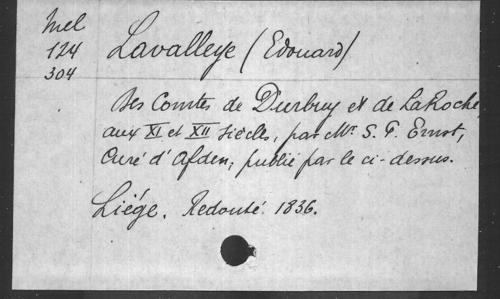 Mel
124
304
Lavalleye (Edouard)
Des Comtes de Durbuy et de LaRoche,
aux XI et XII siècles, par Mr S. P. Ernst,
Curé d'Afden; publié par le ci-dessus.
Liége. Redouté. 1836.